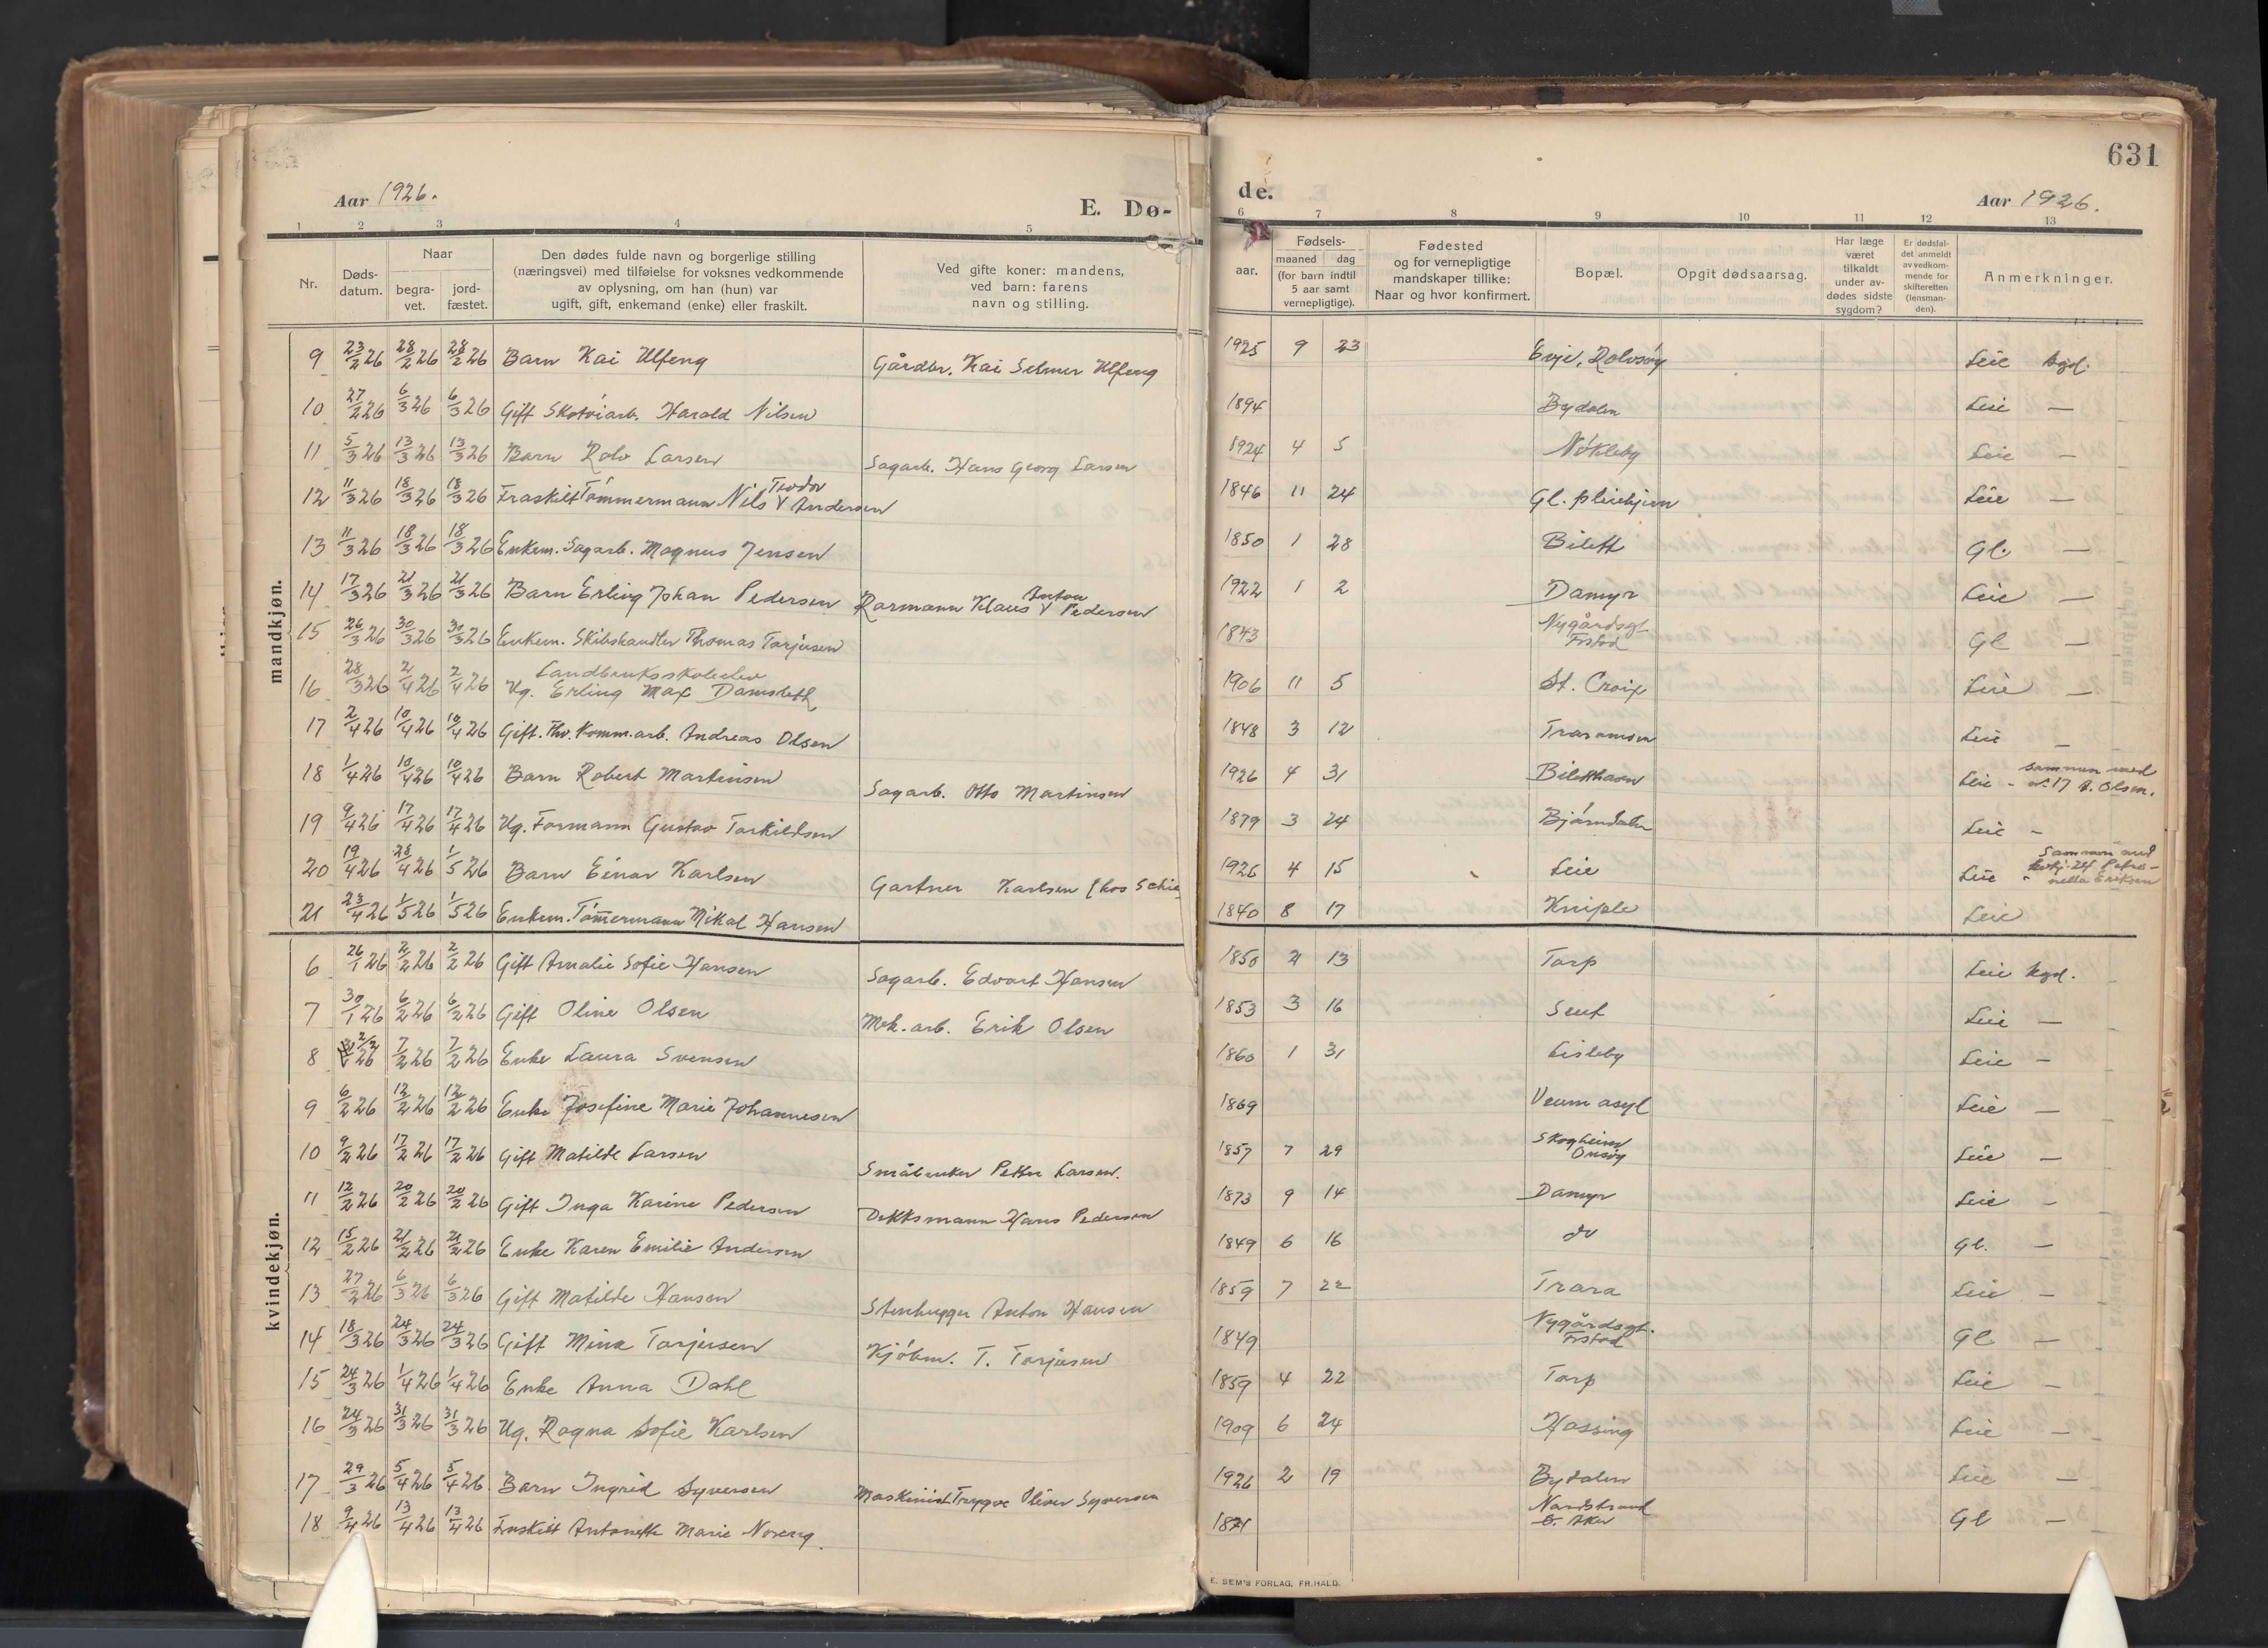 Aar 1926.
E. Dø-
1 2 3 4 5
Nr.
Døds-
datum.
Naar
begra-
vet.
jord-
fæstet.
Den dødes fulde navn og borgerlige stilling
(næringsvei) med tilføielse for voksnes vedkommende
av oplysning, om han (hun) var
ugift, gift, enkemand (enke) eller fraskilt.
Ved gifte koner: mandens,
ved barn: farens
navn og stilling.
mandkjøn.
9 23/2 26 28/2 26 28/2 26 Barn Kai Ulfeng Gårdbr. Kai Selmer Ulfeng
10 27/2 26 6/3 26 6/3 26 Gift Skotøiarb. Harald Nilsen
11 5/3 26 13/3 26 13/3 26 Barn Rolv Larsen Sagarb. Hans Georg Larsen
12 11/3 26 18/3 26 18/3 26 Fraskilt Tømmermann Nils Teodor Andersen
13 11/3 26 18/3 26 18/3 26 Enkem. Sagarb. Magnus Jensen
14 17/3 26 21/3 26 21/3 26 Barn Erling Johan Pedersen Rørmann Klaus Anton Pedersen
15 26/3 26 30/3 26 30/3 26 Enkem. Skibshandler Thomas Torjusen
Landbruksskoleelev
16 28/3 26 2/4 26 2/4 26 Ug. Erling Max Damsleth
17 2/4 26 10/4 26 10/4 26 Gift. Fhv. Komm.arb. Andreas Olsen
18 1/4 26 10/4 26 10/4 26 Barn Robert Martinsen Sagarb. Otto Martinsen
19 9/4 26 17/4 26 17/4 26 Ug. Formann Gustav Torkildsen
20 19/4 26 28/4 26 1/5 26 Barn Einar Karlsen Gartner Karlsen (hos Schie
21 23/4 26 1/5 26 1/5 26 Enkem. Tømmermann Mikal Hansen
kvindekjøn.
6 26/1 26 2/2 26 2/2 26 Gift Amalie Sofie Hansen Sagarb. Edvart Hansen
7 30/1 26 6/2 26 6/2 26 Gift Oline Olsen Mek. arb. Erik Olsen
8 2/2 26 7/2 26 7/2 26 Enke Laura Svensen
9 6/2 26 12/2 26 12/2 26 Enke Josefine Marie Johannesen
10 9/2 26 17/2 26 17/2 26 Gift Matilde Larsen Småbruker Petter Larsen.
11 12/2 26 20/2 26 20/2 26 Gift Inga Karine Pedersen Dekksmann Hans Pedersen
12 15/2 26 21/2 26 21/2 26 Enke Karen Emilie Andersen
13 27/2 26 6/3 26 6/3 26 Gift Matilde Hansen Stenhugger Anton Hansen
14 18/3 26 24/3 26 24/3 26 Gift Mina Torjusen Kjøbm. T. Torjusen
15 24/3 26 1/4 26 1/4 26 Enke Anna Dahl
16 24/3 26 31/3 26 31/3 26 Ug. Ragna Sofie Karlsen
17 29/3 26 5/4 26 5/4 26. Barn Ingrid Syversen Maskinist Trygve Oliver Syversen
18 9/4 26 13/4 26 13/4 26 Fraskilt Antonette Marie Noreng.
631
de.
Aar 1926.
6 7 8 9 10 11 12 13
aar.
Fødsels-
maaned dag
(for barn indtil
5 aar samt
vernepligtige).
Fødested
og for vernepligtige
mandskaper tillike:
Naar og hvor konfirmert.
Bopæl.
Opgit dødsaarsag.
Har læge
været
tilkaldt
under av-
dødes sidste
sygdom?
Er dødsfal-
det anmeldt
av vedkom-
mende for
skifteretten
(lensman-
den).
Anmerkninger.
1925 9 23 Evje, Rolvsøy Leie kgd.
1894 Bydalen Leie —
1924 4 5 Nøkleby Leie —
1846 11 24 Gl. pleiehjem Leie —
1850 1 28 Bilett Gl. —
1922 1 2 Damyr Leie —
1843 Nygårdsgt. Frstad Gl —
1906 11 5 St. Croix Leie —
1848 3 12 Traraåsen Leie —
1926 4 31 Biletthavn Leie - sammen med
nr. 17 A. Olsen.
1879 3 24 Bjørndalen Leie -
1926 4 15 Leie Leie " Sammen med
kvkj. 24 Petro-
nella Eriksen
1840 8 17 Kniple Leie
1850 2 13 Torp Leie kgd.
1853 3 16 Seut Leie —
1860 1 31 Lisleby Leie —
1869 Veum asyl Leie —
1857 7 29 Skogheim Onsøy Leie —
1873 9 14 Damyr Leie —
1849 6 16 do Gl. —
1859 7 22 Trara Leie —
1849 Nygårdsgt. Frstad Gl —
1859 4 22 Torp Leie —
1909 6 24 Hassing Leie —
1926 2 19 Bydalen Leie —
1871 Nordstrand Aker Gl —
E. SEM'S FORLAG, FR.HALD.